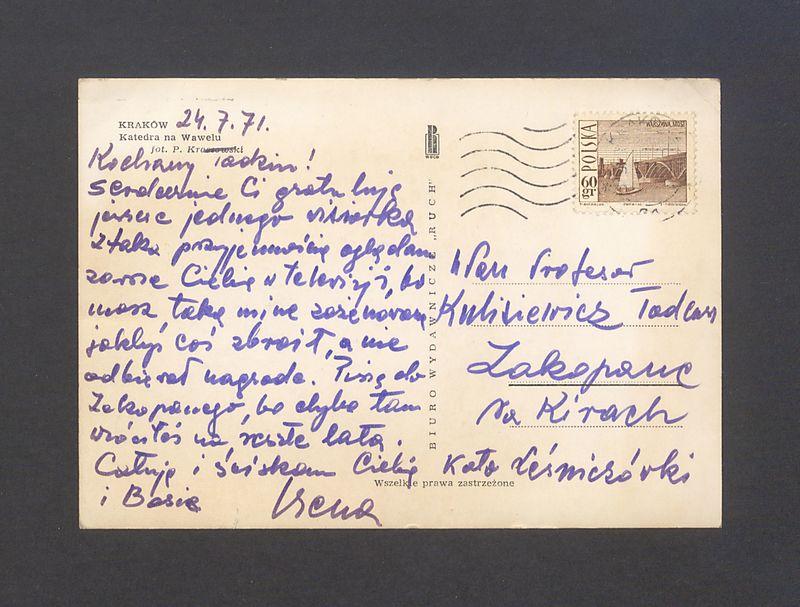 KRAKÓW
Katedra na Wawelu
fot. P. Krassowski
24.7.71.
Kochany Tadziu!
serdecznie Ci gratuluję
jeszcze jednego
z taką przyjemnością oglądam
zawsze Ciebie w telewizji, bo
masz taką minę zażenowaną
jakbyś coś zbroił, a nie
odbierał nagrodę. Piszę do
Zakopanego, bo chyba tam
wróciłeś na resztę lata.
Całuję i ściskam Ciebie
i Basię
Irena
RUCH
BIURO WYDAWNICZE „RUCH”
Wszelkie prawa zastrzeżone
POLSKA
60 GR
WARSZAWA, MOST
Wan Profesor
Kulisiewicz Tadeusz
Zakopane
Na Kirach
Koło Leśniczówki